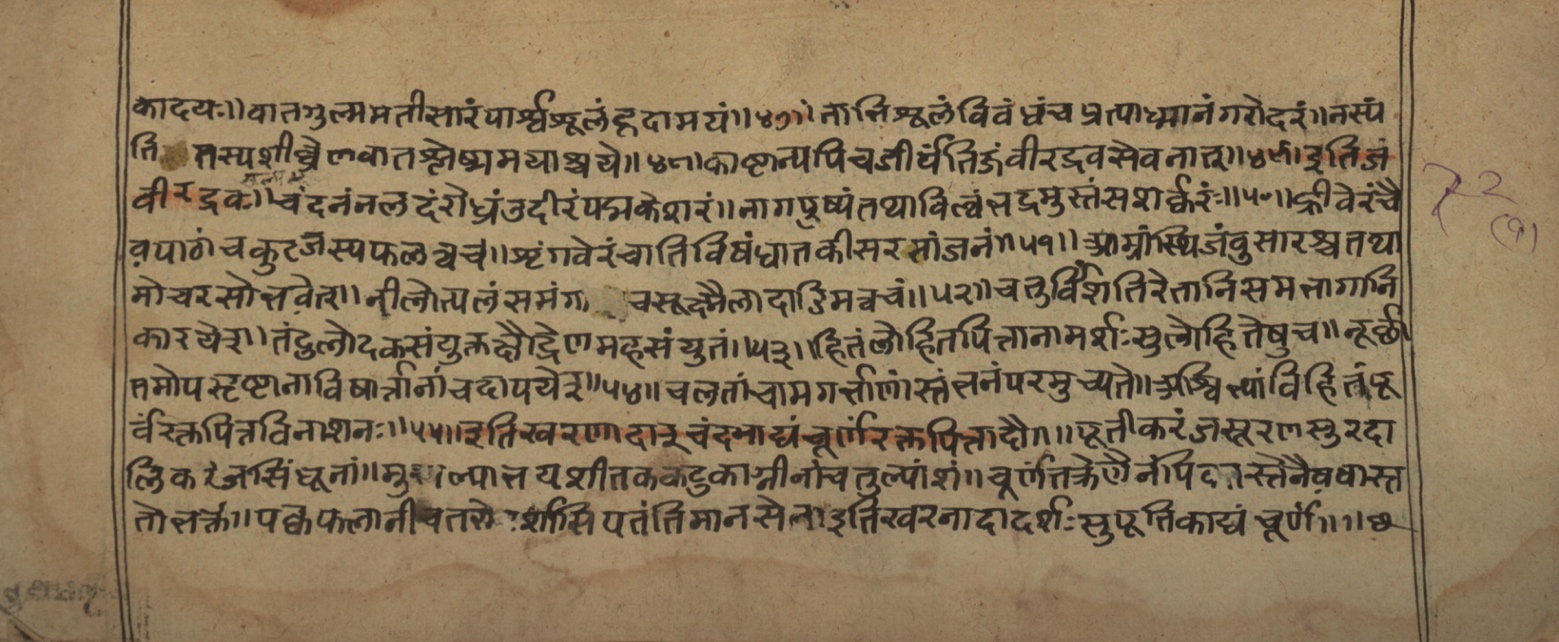 कादयः॥वातगुल्ममतीसारंपार्श्वशूलंहृदामयं॥४७॥नाभिशूलंविवंधंचप्रत्याध्मानंगरोदरं॥नस्पं
ति तस्यशीघ्रैलवातश्लेष्ममयाश्चये॥४८॥काष्टान्यपिचजीर्यंतिजंवीरद्रवसेवनात्॥४९॥इतिजं
वीरद्रवः॥चंदनंनलदंरोध्रंउदीरंपद्मकेशरं॥नागपुष्पंतथाविल्वंभद्रमुस्तंसशर्क्करः॥५०॥ह्रीवेरंचै
वपाठांचकुटजस्यफलत्वचं॥शृंगवेरंचातिविषंधातकीसरसांजनं॥५१॥आम्रास्थिजंवुसारश्चतथा
मोचरसोभवेत्॥नीलोत्पलंसमंग चसूक्ष्मैलादाडिमत्वचं॥५२॥चतुर्विंशतिरेतानिसमभागानि
कारयेत्॥तंदुलोदकसंयुक्तक्षौद्रेणमहसंयुतं॥५३॥हितंलोहितपित्तानामर्शःसुलोहितेषुच॥मूर्छा
तमोपसृष्टानाविषार्त्तानांचदापयेत्॥५४॥चलतांचामगर्भाणांस्तंभनंपरमुच्यते॥अश्विभ्यांविहितंपू
र्वंरक्तपित्तविनाशनः॥५५॥इतिखरणादात्चंदनाद्यंचूर्णंरक्तपित्तादौ॥॥पूतीकरंजसूरणसुरदा
लिकरंजसिंधूनां॥मु ल्याभयशीतककटुकाग्नीनांचतुल्यांशं॥चूर्णंतक्रेणैनंपि स्तेनैषधास्त
तोभक्ते॥पक्वफलानीवतरो र्शांसिपतंतिमानसेना॥इतिखरनादादर्शःसुपूतिकाद्यंचूर्णं॥॥छ